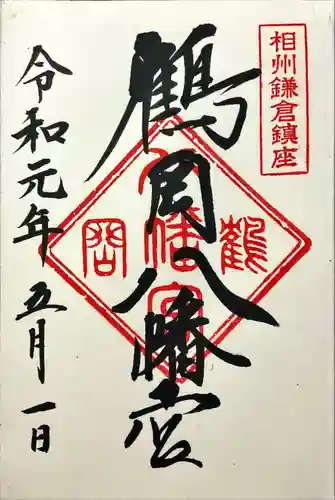 相州鎌倉鎮座
鶴岡八幡宮
鶴
八幡宮
岡
令和元年五月一日